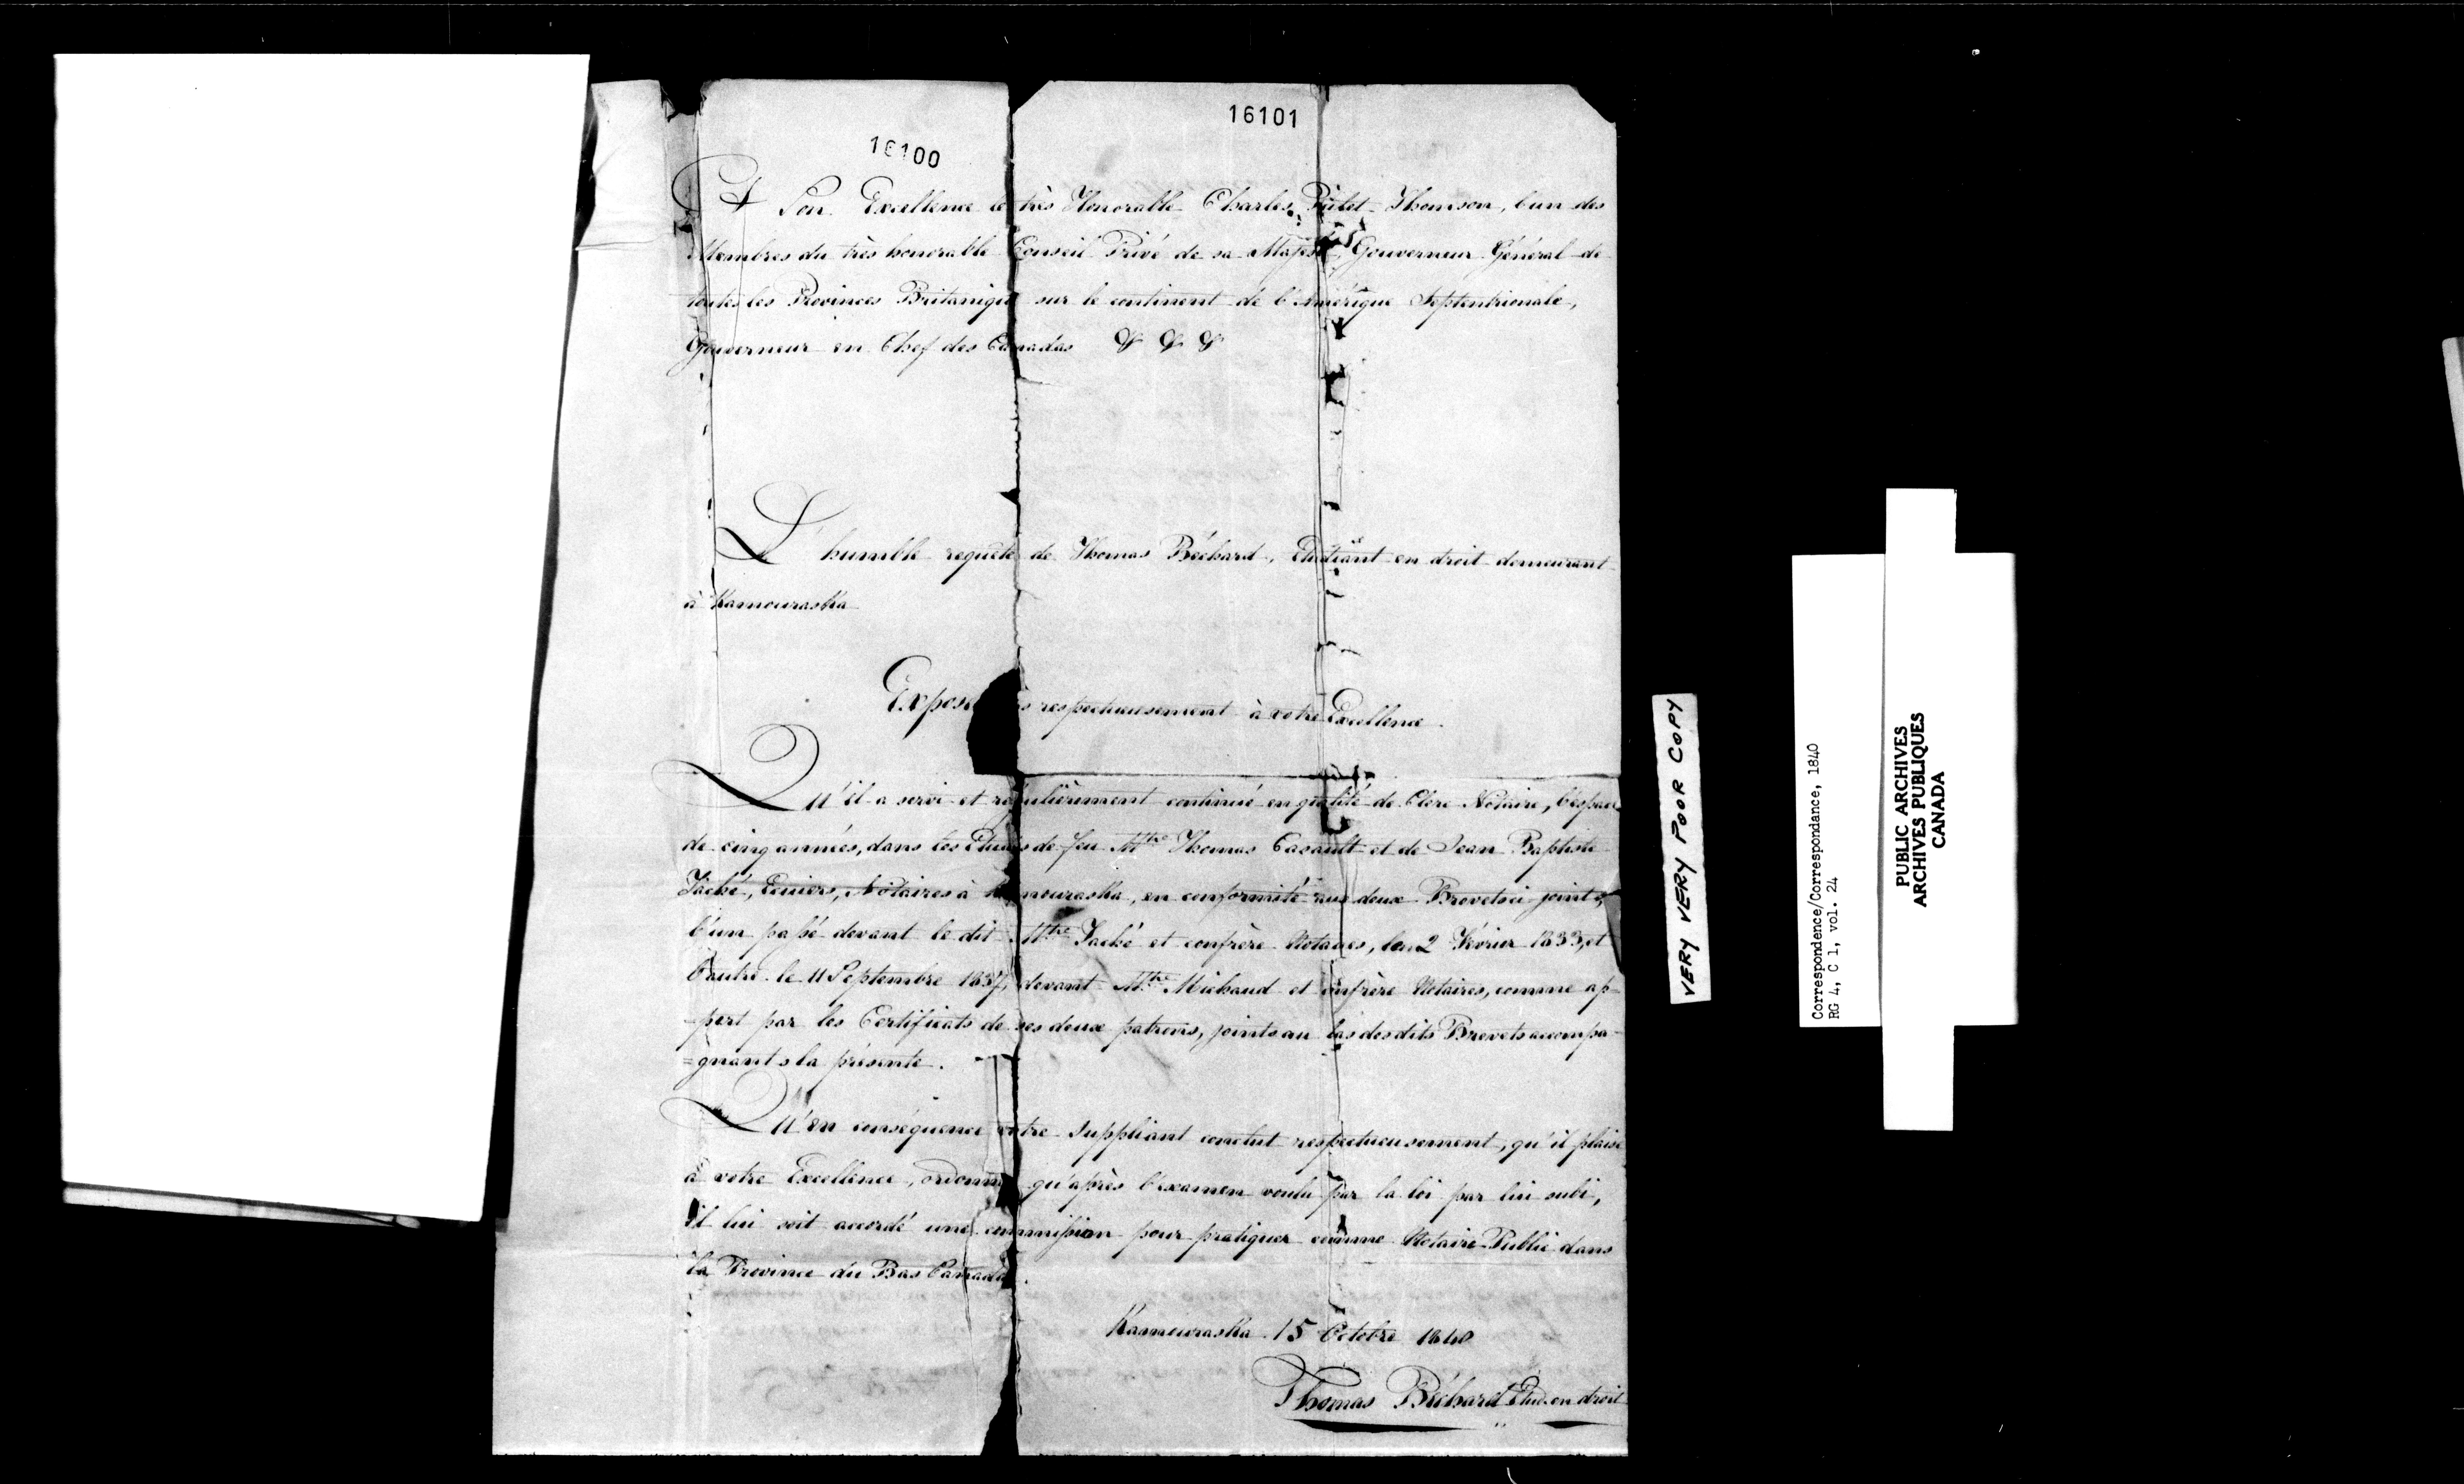 16101
16100
A Son Excellence le très Honorable Charles Pulet Thomson, l'un des
Membres du très honorable Conseil Privé de sa Majesté, Gouverneur Général de
toutes les Provinces Britaniqu sur le continent de l'Amérique Septentrionale,
Gouverneur en Chef des Canadas & & &
L'humble requête de Thomas Béchard, Etudiant en droit demeurant
à Kamouraska
Expose s respectueusement à votre Excellence.
Qu'il a servi et régulièrement continué en qualité de Clerc Notaire, l'espace
de cinq années, dans les Etudes de feu Mtre Thomas Casault et de Jean Baptiste
Taché, Ecuiers, Notaires à Kamouraska, en conformité aux deux Brevets ci-joints,
l'un passé devant le dit Mtre Taché et confrère Notaires, le 2 Février 1833, et
l'autre le 11 Septembre 1837, devant Mtre Michaud et confrère Notaires, comme ap-
-pert par les Certificats de ses deux patrons, joints au bas des dits Brevets accompa-
=gnants la présente.
Qu'en conséquence votre suppliant conclut respectueusement, qu'il plaise
à votre Excellence, ordonner qu'après l'examen voulu par la loi par lui subi,
il lui soit accordé une commission pour pratiquer comme Notaire Public dans
la Province du Bas Canada.
Kamouraska 15 Octobre 1840
Thomas Béchard Etud. en droit
VERY VERY POOR COPY
Correspondence/Correspondance, 1840
RG 4, C 1, vol. 24
PUBLIC ARCHIVES
ARCHIVES PUBLIQUES
CANADA